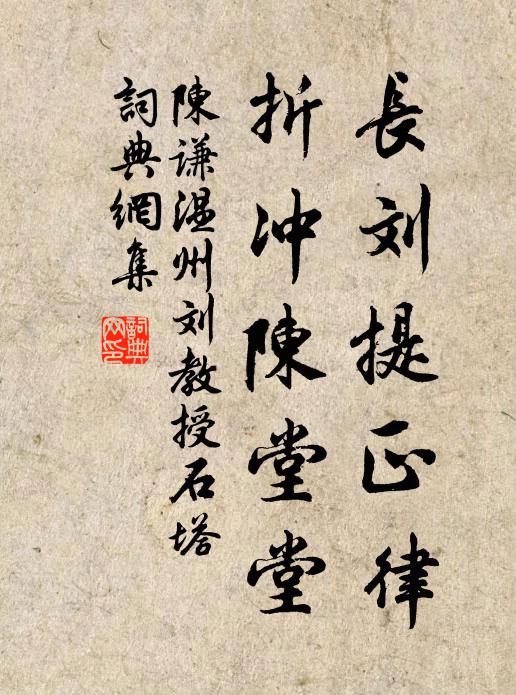 長刘提正律
折冲陳堂堂
陳谦温州刘教授石塔
詞典網集
詞典網印